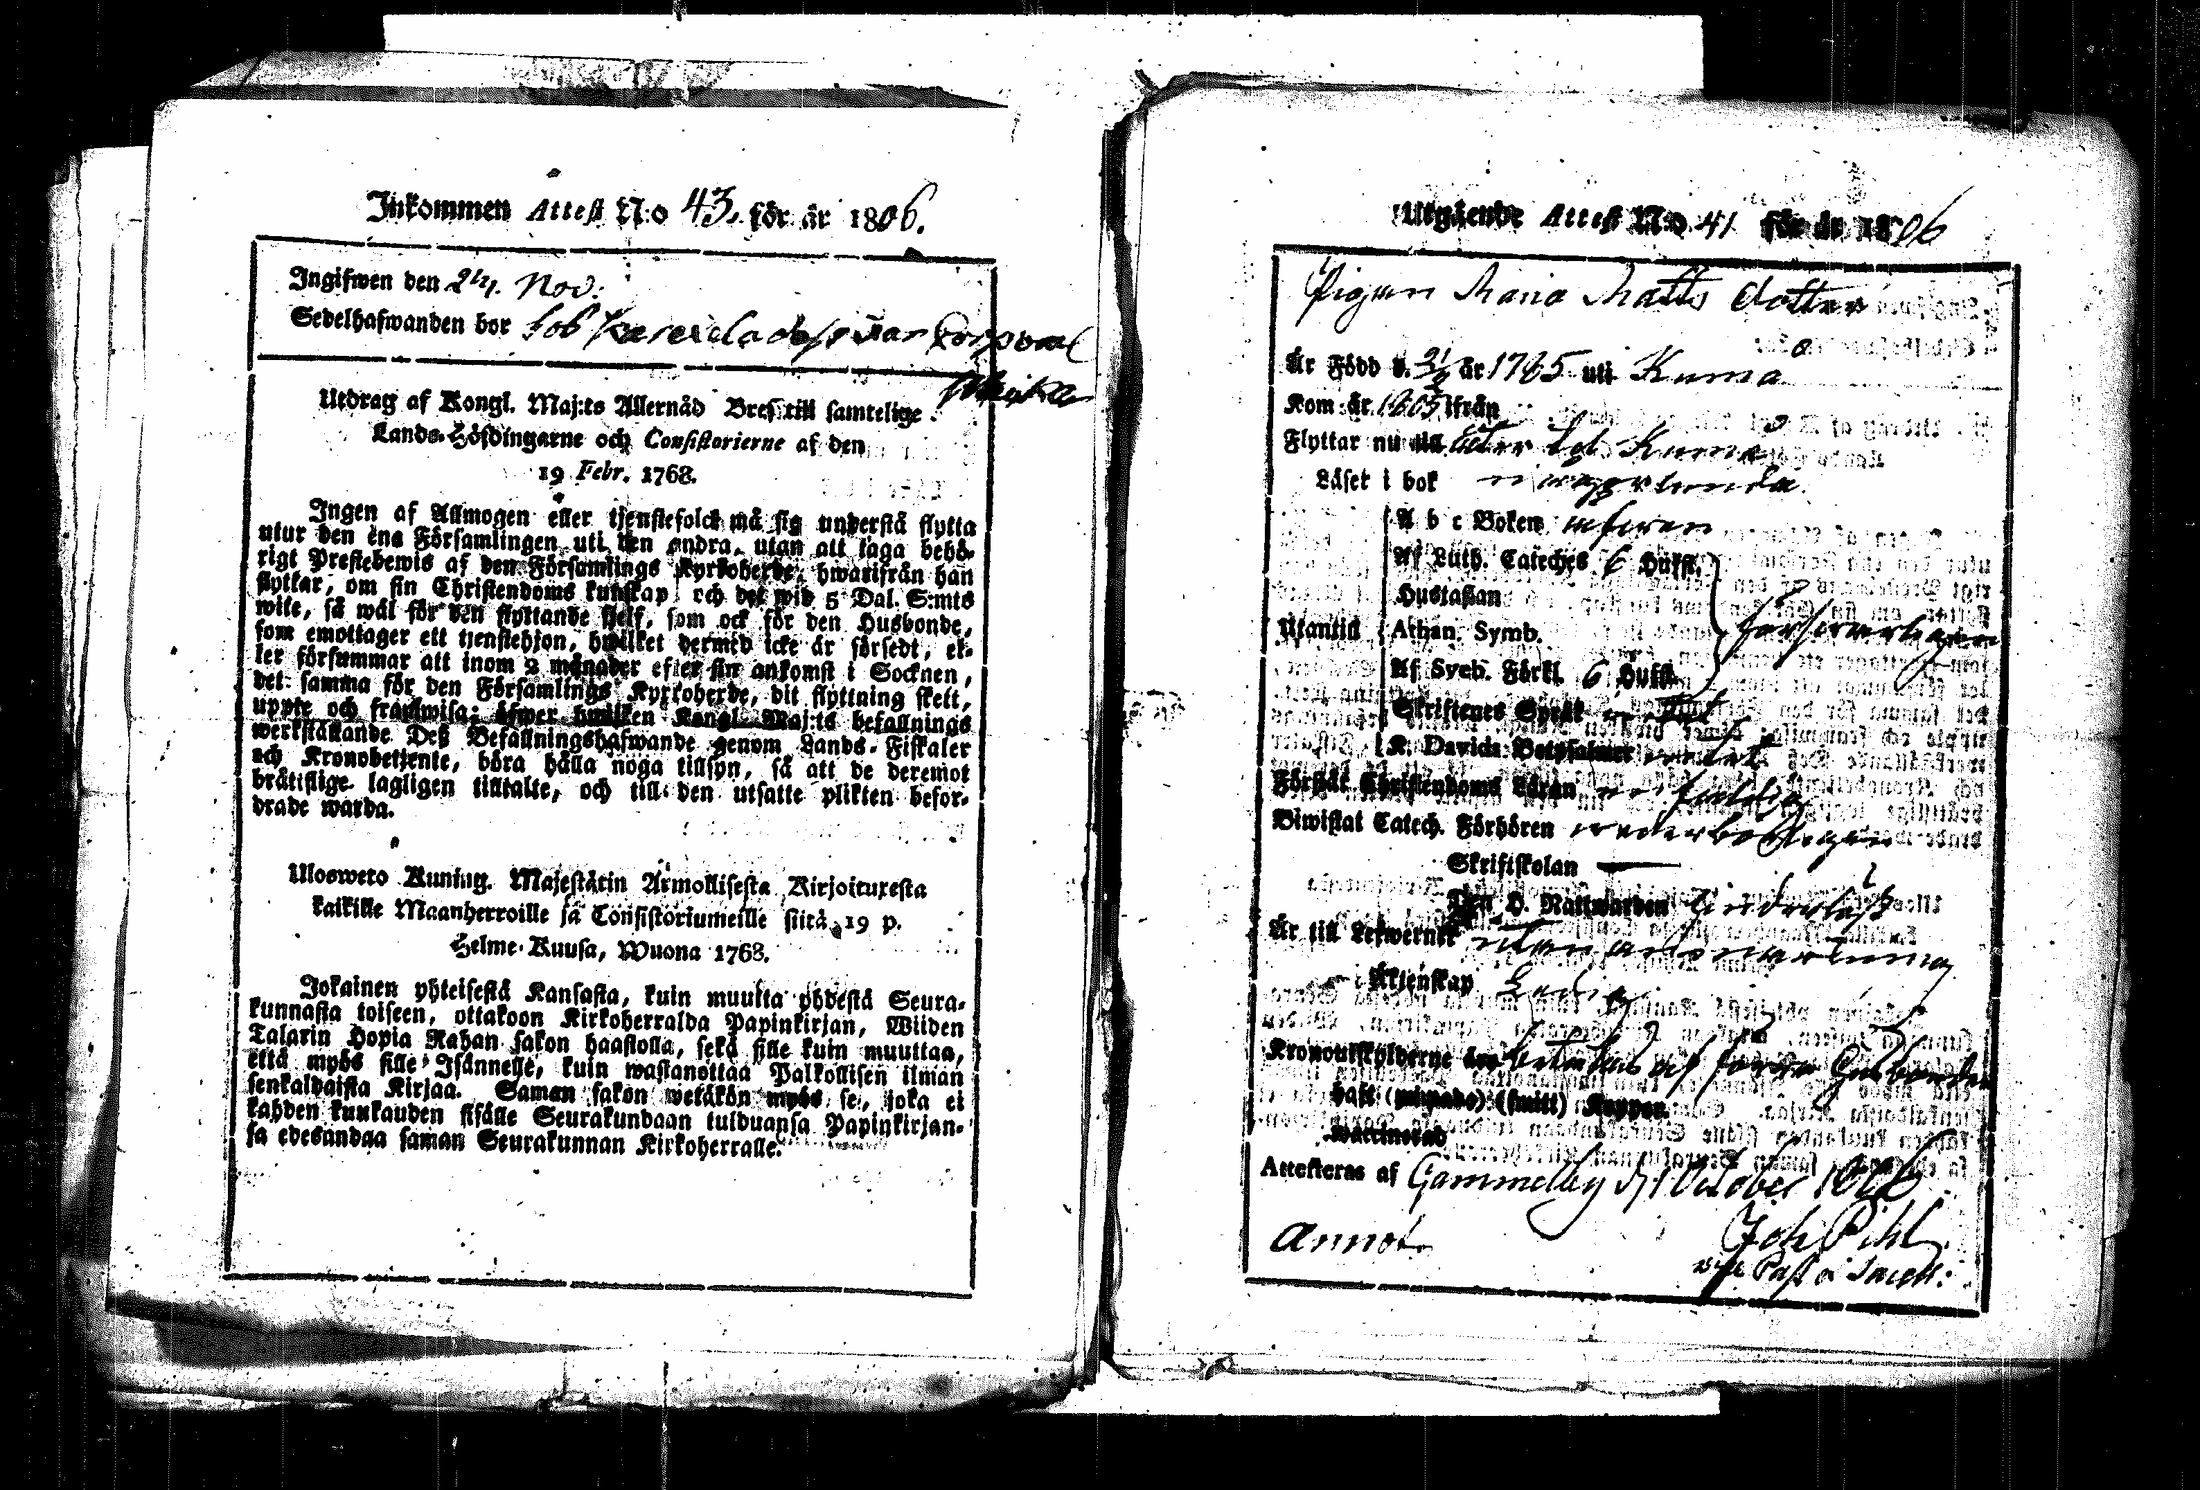 Inkommen Attest N:o 43. för år 1806.
Ingifwen den 2/11. Nov:
Sedelhafwanden bor
Utdrag af Kongl. Maj:ts Allernåd Bref till samtelige
Lands-Höfdingarne och Consistorierne af den
19 Febr. 1768.
Ingen af Allmogen eller tjenstefolck må sig understå flytta
utur den ena Församlingen uti den andra, utan att taga behö-
rigt Prestebewis af den Församlings Kyrkoherde, hwarifrån han
flyttar, om sin Christendoms kunskap, och det wid 5 Dal. S:mts
wite, så wäl för den flyttande sjelf, som ock för den Husbonde,
som emottager ett tjenstehjon, hwilket dermed icke är försedt, el-
ler försummar att inom 2 månader efter sin ankomst i Socknen,
det samma för den Församlings Kyrkoherde, dit flyttning skett,
uppte och framwisa; öfwer hwilken Kongl. Maj:ts befallnings
werkställande Deß Befallningshafwande genom Lands-Fiskaler
och Kronobetjente, böra hålla noga tillsyn, så att de deremot
brätislige lagligen tilltalte, och till den utsatte plikten befor-
drade warda.
Ulosweto Kuning. Majestätin Armollisesta Kirjoituxesta
kaikille Maanherroille ja Consistoriumeille siitä 19 p.
Helme-Kuusa, Wuona 1768.
Jokainen yhteisestä Kansasta, kuin muutta yhdestä Seura-
kunnasta toiseen, ottakoon Kirkoherralda Papinkirjan, Wiiden
Talarin Hopia Rahan sakon haastolla, sekä sille kuin muuttaa,
että myös sille Isännelle, kuin wastanottaa Palkollisen ilman
senkaldaista Kirjaa. Saman sakon wetäkön myös se, joka ei
kahden kuukauden sisälle Seurakundaan tulduansa Papinkirjan-
sa edesandaa saman Seurakunnan Kirkoherralle.
Utgående Attest N:o 41 för år 1806
Pigan Maria Matts dotter
Är Född d. år 1785 uti Kumo
Kom år 1805 ifrån
Flyttar nu till Kumo
Läset i bok
A b c Boken
Af Luth. Cateches 6 Hufst.
Hustaflan
Utantill Athan. Symb. försvarligen
Af Sveb. Förkl. 6 Hufst.
Skriftenes Språk
K. Davids Botpsalmer
Förstår Christendoms Läran
Biwistat Catech. Förhören
Skriftskolan
H. Nattwarden
Är till Lefwernet utan anmärkning
Äktenskap Ledig
Kronoutskylderne betalas af förra Husbonden
haft (ympade) (smitt) Koppor
Attesteras af Gammelby d. October 1806
Annot. Joh. Pihl